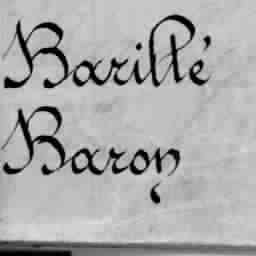 Barillé
Baron